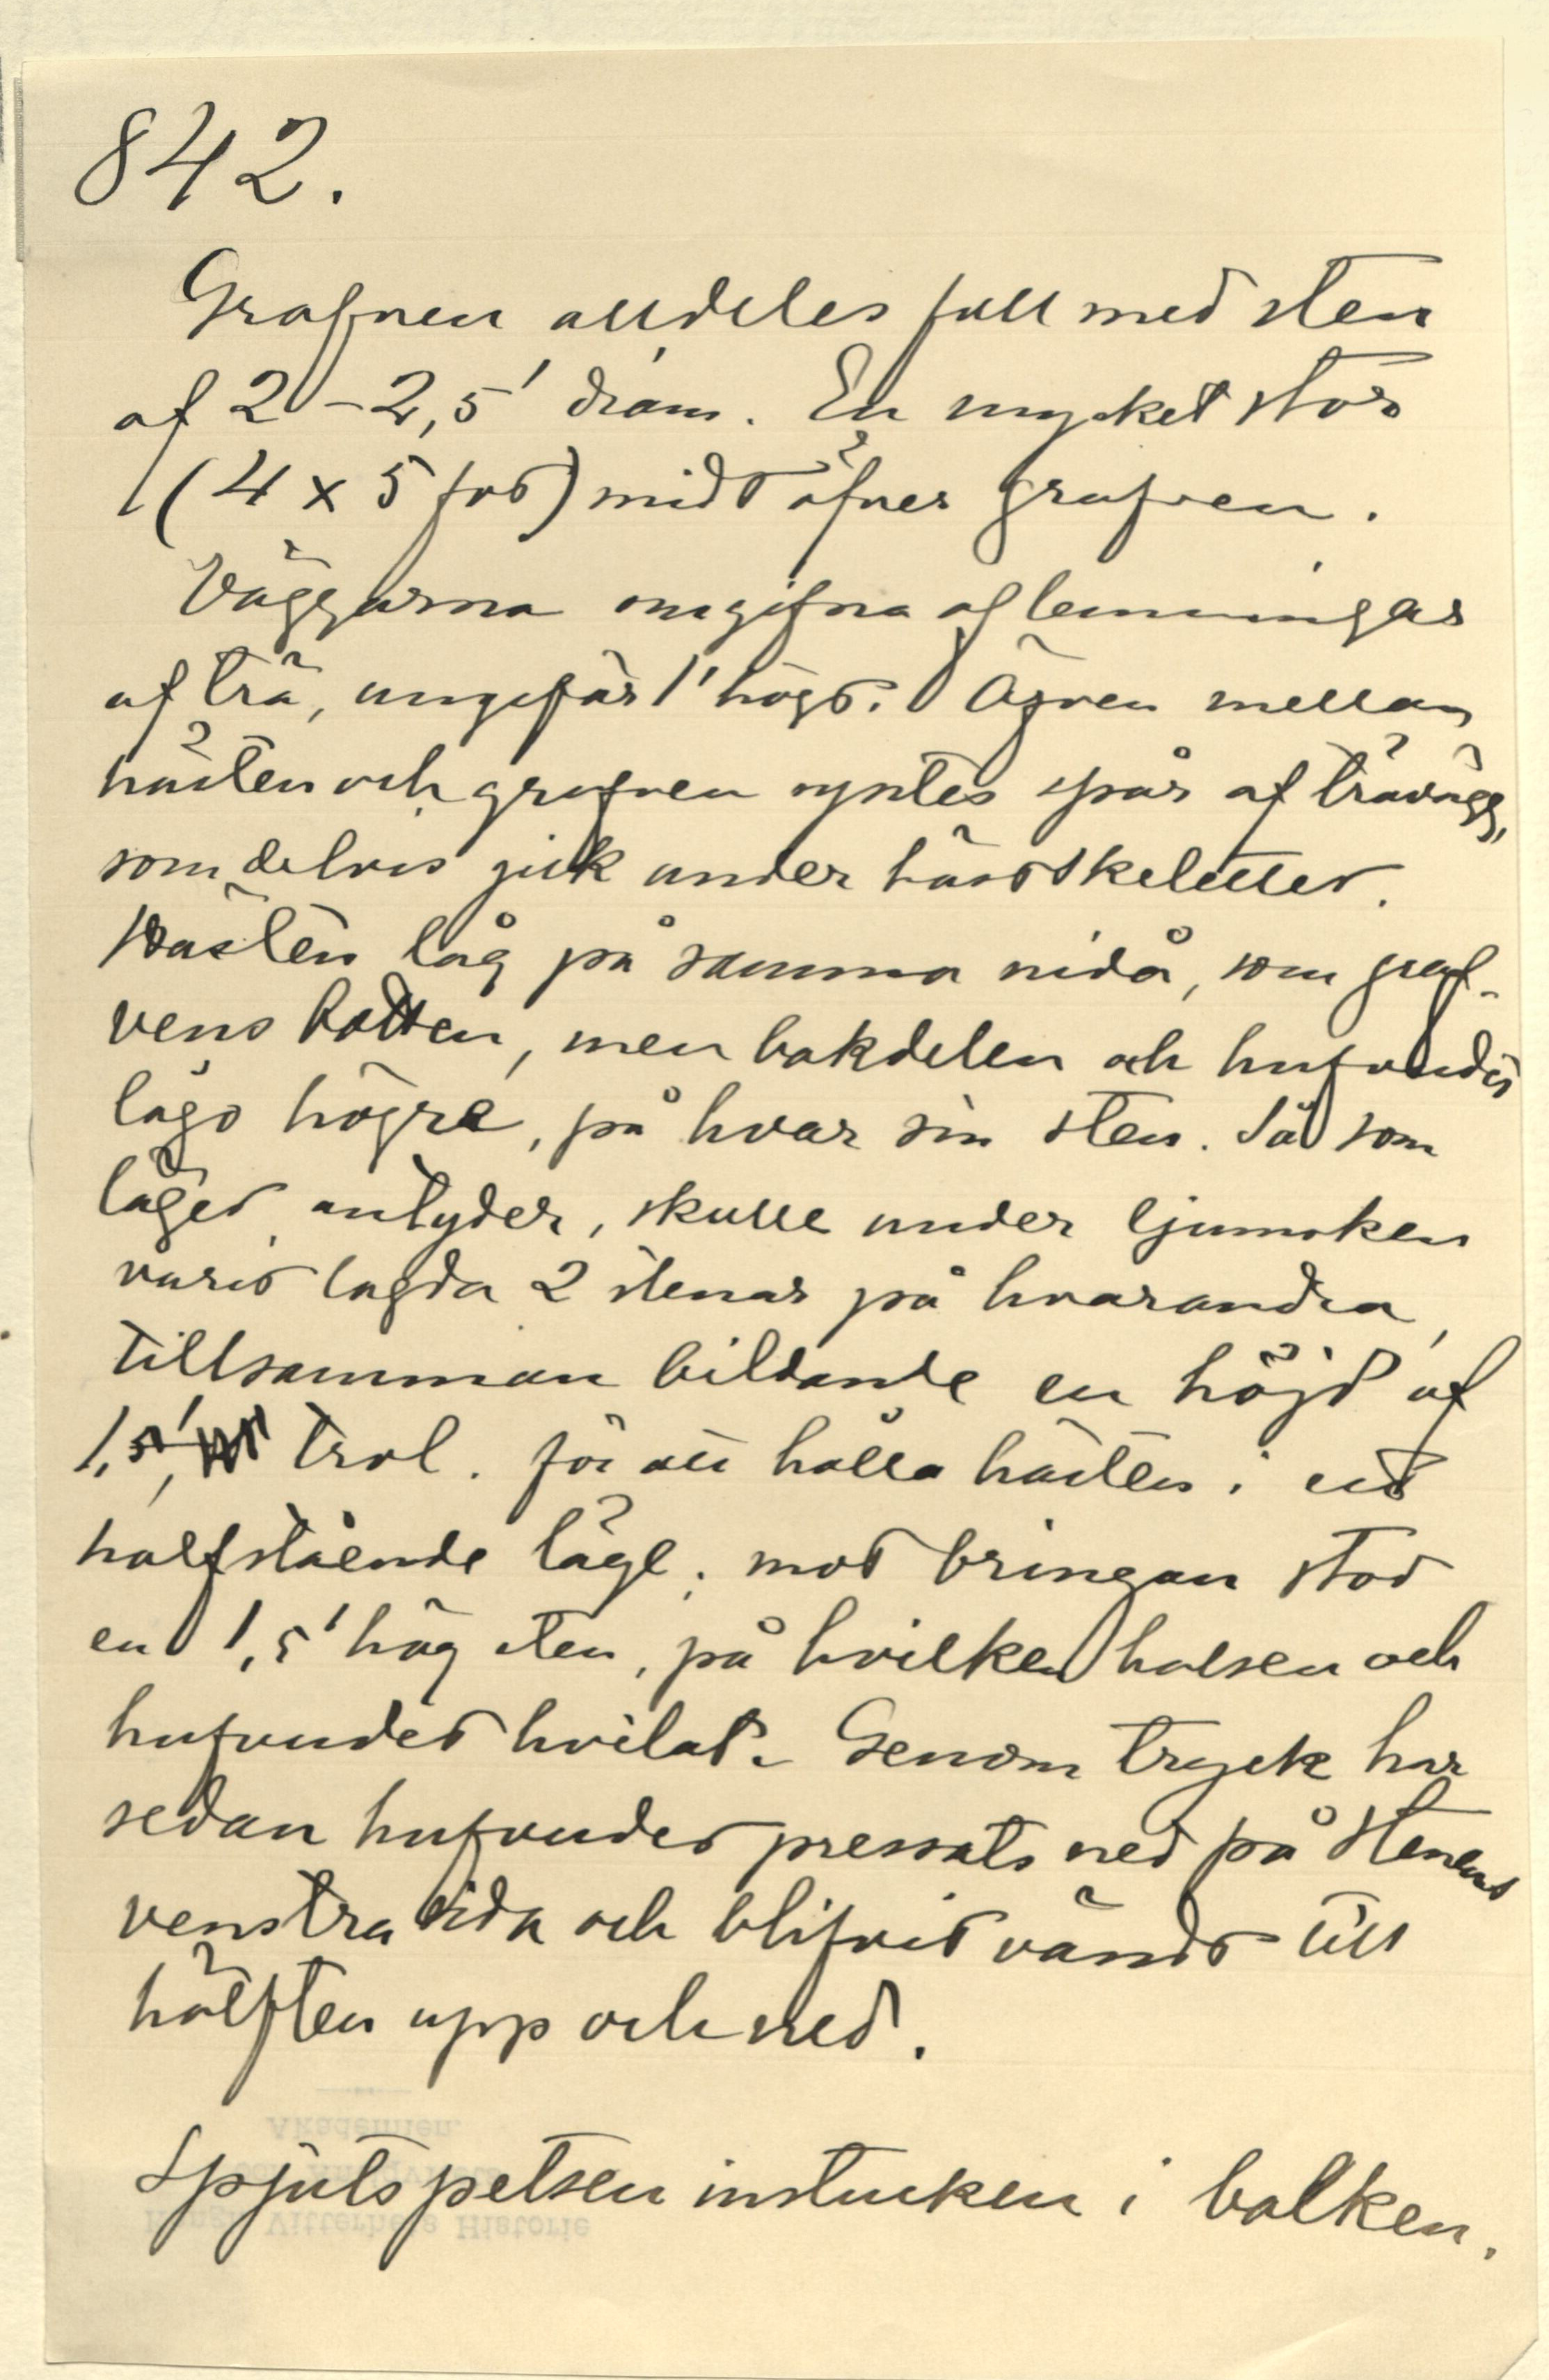 842.
Grafven alldeles full med sten
af 2–2,5' diam. En mycket stor
(4 x 5 fot) midt öfver grafven.
Väggarna omgifna af lemningar
af trä, ungefär 1' högt. Äfven mellan
hästen och grafven syntes spår af trävägg,
som delvis gick under hästskelettet.
Hästen låg på samma nivå, som graf-
vens botten, men bakdelen och hufvudet
lågo högre, på hvar sin sten. Så som
läget antyder, skulle under ljumsken
varit lagda 2 stenar på hvarandra,
tillsamman bildande en höjd af
1,5', trol. för att hålla hästen i ett
halfstående läge; mot bringan stod
en 1,5' hög sten, på hvilken halsen och
hufvudet hvilat. Genom tryck har
sedan hufvudet pressats ned på stenens
venstra sida och blifvit vändt till
hälften upp och ned.
Spjutspetsen instucken i balken.
Akademien.
Kongl. Vitterhets Historie